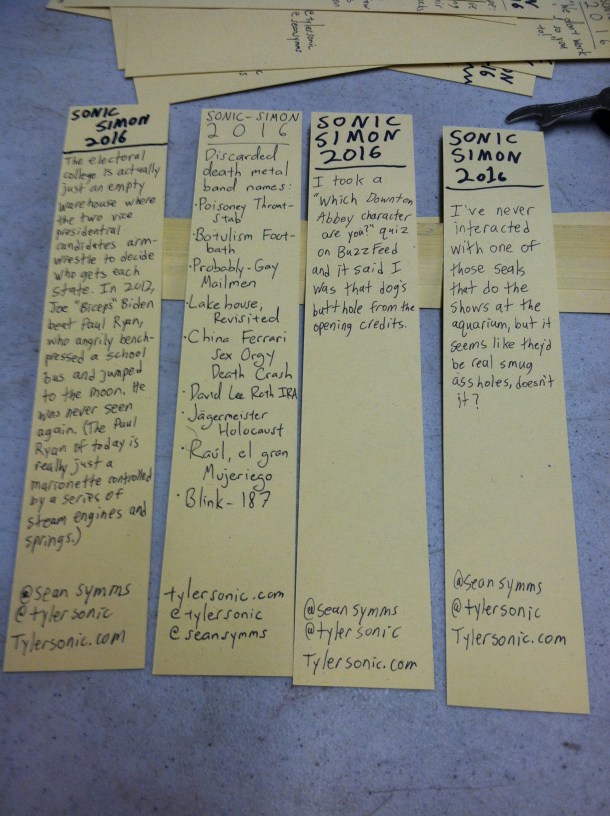 @tylersonic
@seansymms
2016
SONIC
SIMON
2016
The electoral
college is actually
just an empty
warehouse where
the two vice
presidential
candidates arm-
wrestle to decide
who gets each
state. In 2012,
Joe "Biceps" Biden
beat Paul Ryan,
who angrily bench-
pressed a school
bus and jumped
to the moon. He
was never seen
again. (The Paul
Ryan of today is
really just a
marionette controlled
by a series of
steam engines and
springs.)
@seansymms
@tylersonic
Tylersonic.com
SONIC-SIMON
2016
Discarded
death metal
band names:
·Poisoney Throat-
stab
·Botulism Foot-
bath
·Probably-Gay
Mailmen
·Lakehouse,
Revisited
·China Ferrari
Sex Orgy
Death Crash
·David Lee Roth IRA
·Jägermeister
Holocaust
·Raúl, el gran
Mujeriego
·Blink-187
tylersonic.com
@tylersonic
@seansymms
SONIC
SIMON
2016
I took a
"Which Downton
Abbey character
are you?" quiz
on BuzzFeed
and it said I
was that dog's
butthole from the
opening credits.
@seansymms
@tylersonic
Tylersonic.com
SONIC
SIMON
2016
I've never
interacted
with one of
those seals
that do the
shows at the
aquarium, but it
seems like they'd
be real smug
assholes, doesn't
it?
@seansymms
@tylersonic
Tylersonic.com